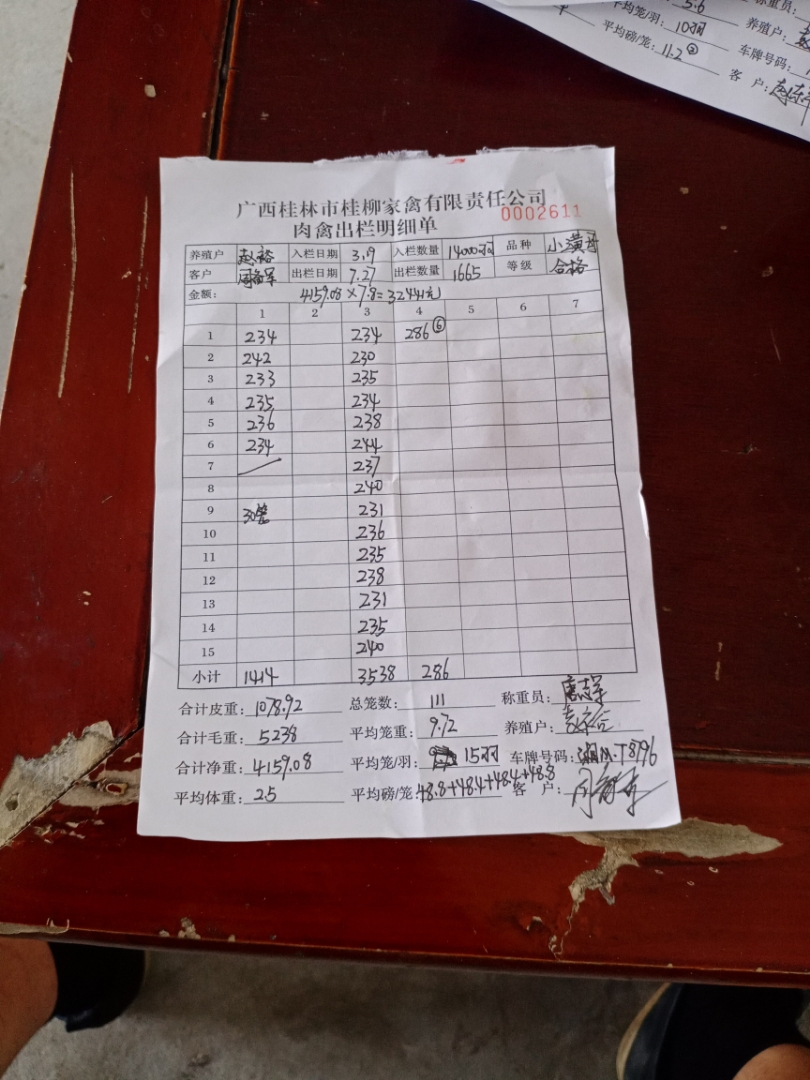 5.6
称重员:
平均笼/羽: 10羽 养殖户:
平均磅/笼: 11.2 ② 车牌号码:
客 户:
广西桂林市桂柳家禽有限责任公司
0002611
肉禽出栏明细单
养殖户 入栏日期 3.19 入栏数量 14000羽 品种
客户 出栏日期 7.27 出栏数量 1665 等级 合格
金额: 4159.08×7.8=32441元
1 2 3 4 5 6 7
1 234 234 286⑥
2 242 230
3 233 235
4 235 234
5 236 238
6 234 244
7 237
8 240
9 231
10 236
11 235
12 238
13 231
14 235
15 240
小计 1414 3538 286
合计皮重: 1078.92 总笼数: 111 称重员:
合计毛重: 5238 平均笼重: 9.72 养殖户:
合计净重: 4159.08 平均笼/羽: 15羽 车牌号码: T8796
平均体重: 2.5 平均磅/笼: 48.8+48.4+48.4+48.8 客 户: